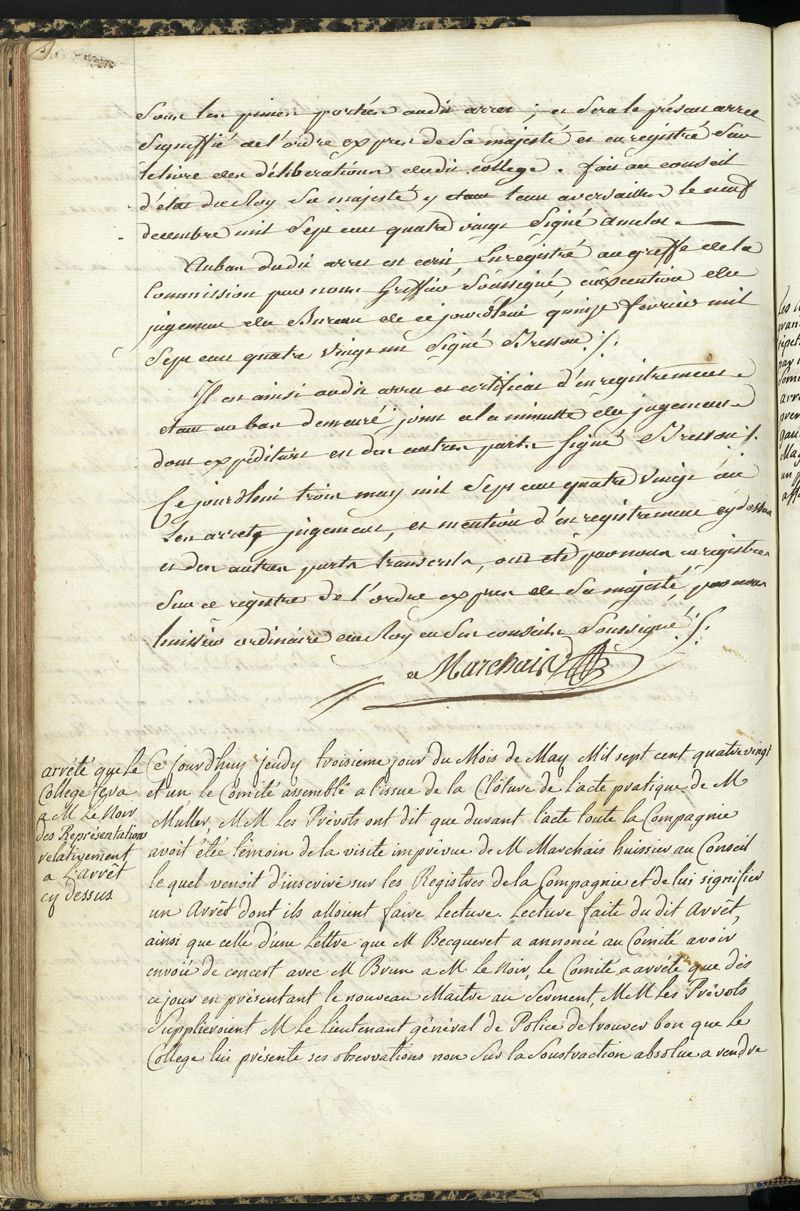 sous les peines portées audit arret ; et sera le présent arret
signiffié de l'ordre exprès de sa majesté et enregistré sur
le livre des déliberations dudit college. fait au conseil
d'état du Roy sa majesté y etant tenu a versailles le neuf
decembre mil sept cent quatre vingt signé amelot.
Au bas dudit arret est ecrit Enregistré au greffe de la
Commission par nous Greffier soussigné en execution du
jugement du Bureau de ce jourdhui quinze fevrier mil
sept cent quatre vingt un signé Bresson ./.
Il est ainsi audit arret et certificat d'enregistrement
etant au bas demeuré joint a la minutte du jugement
dont expédition est des autres parts signé Bresson ./.
Ce jourdhui trois may mil sept cent quatre vingt un
Les arrets jugement, et mention d'enregistrement cy dessus
et des autres parts transcrits, ont été par nous enregistrés
sur ce registre de l'ordre exprès de sa majesté, par nous
huissier ordinaire du Roy en ses conseils soussigné ./.
Marchais
arrêté que le
College fera
a M Le Noir
des Représentations
relativement
a L'arrêt
cy dessus
Ce Jourdhuy jeudy troisieme jour du Mois de May Mil sept cent quatre vingt
et un le Comité assemblé a l'issue de la Clôture de l'acte pratique de M
Muller, MM les Prévots ont dit que durant l'acte toute la Compagnie
avoit étée témoin de la visite imprévue de M Marchais huissier au Conseil
le quel venoit d'inscrire sur les Registres de la Compagnie et de lui signifier
un Arrêt dont ils alloient faire Lecture. Lecture faite du dit Arrêt,
ainsi que celle d'une Lettre que M Becqueret a annoncé au Comité avoir
envoié de concert avec M Brun a M le Noir, le Comité a arrêté que dès
ce jour en présentant le nouveau Maitre au Serment, MM les Prévots
Supplieroient M le Lieutenant général de Police de trouver bon que le
College lui présente ses observations non sur la Soustraction absolue a rendre